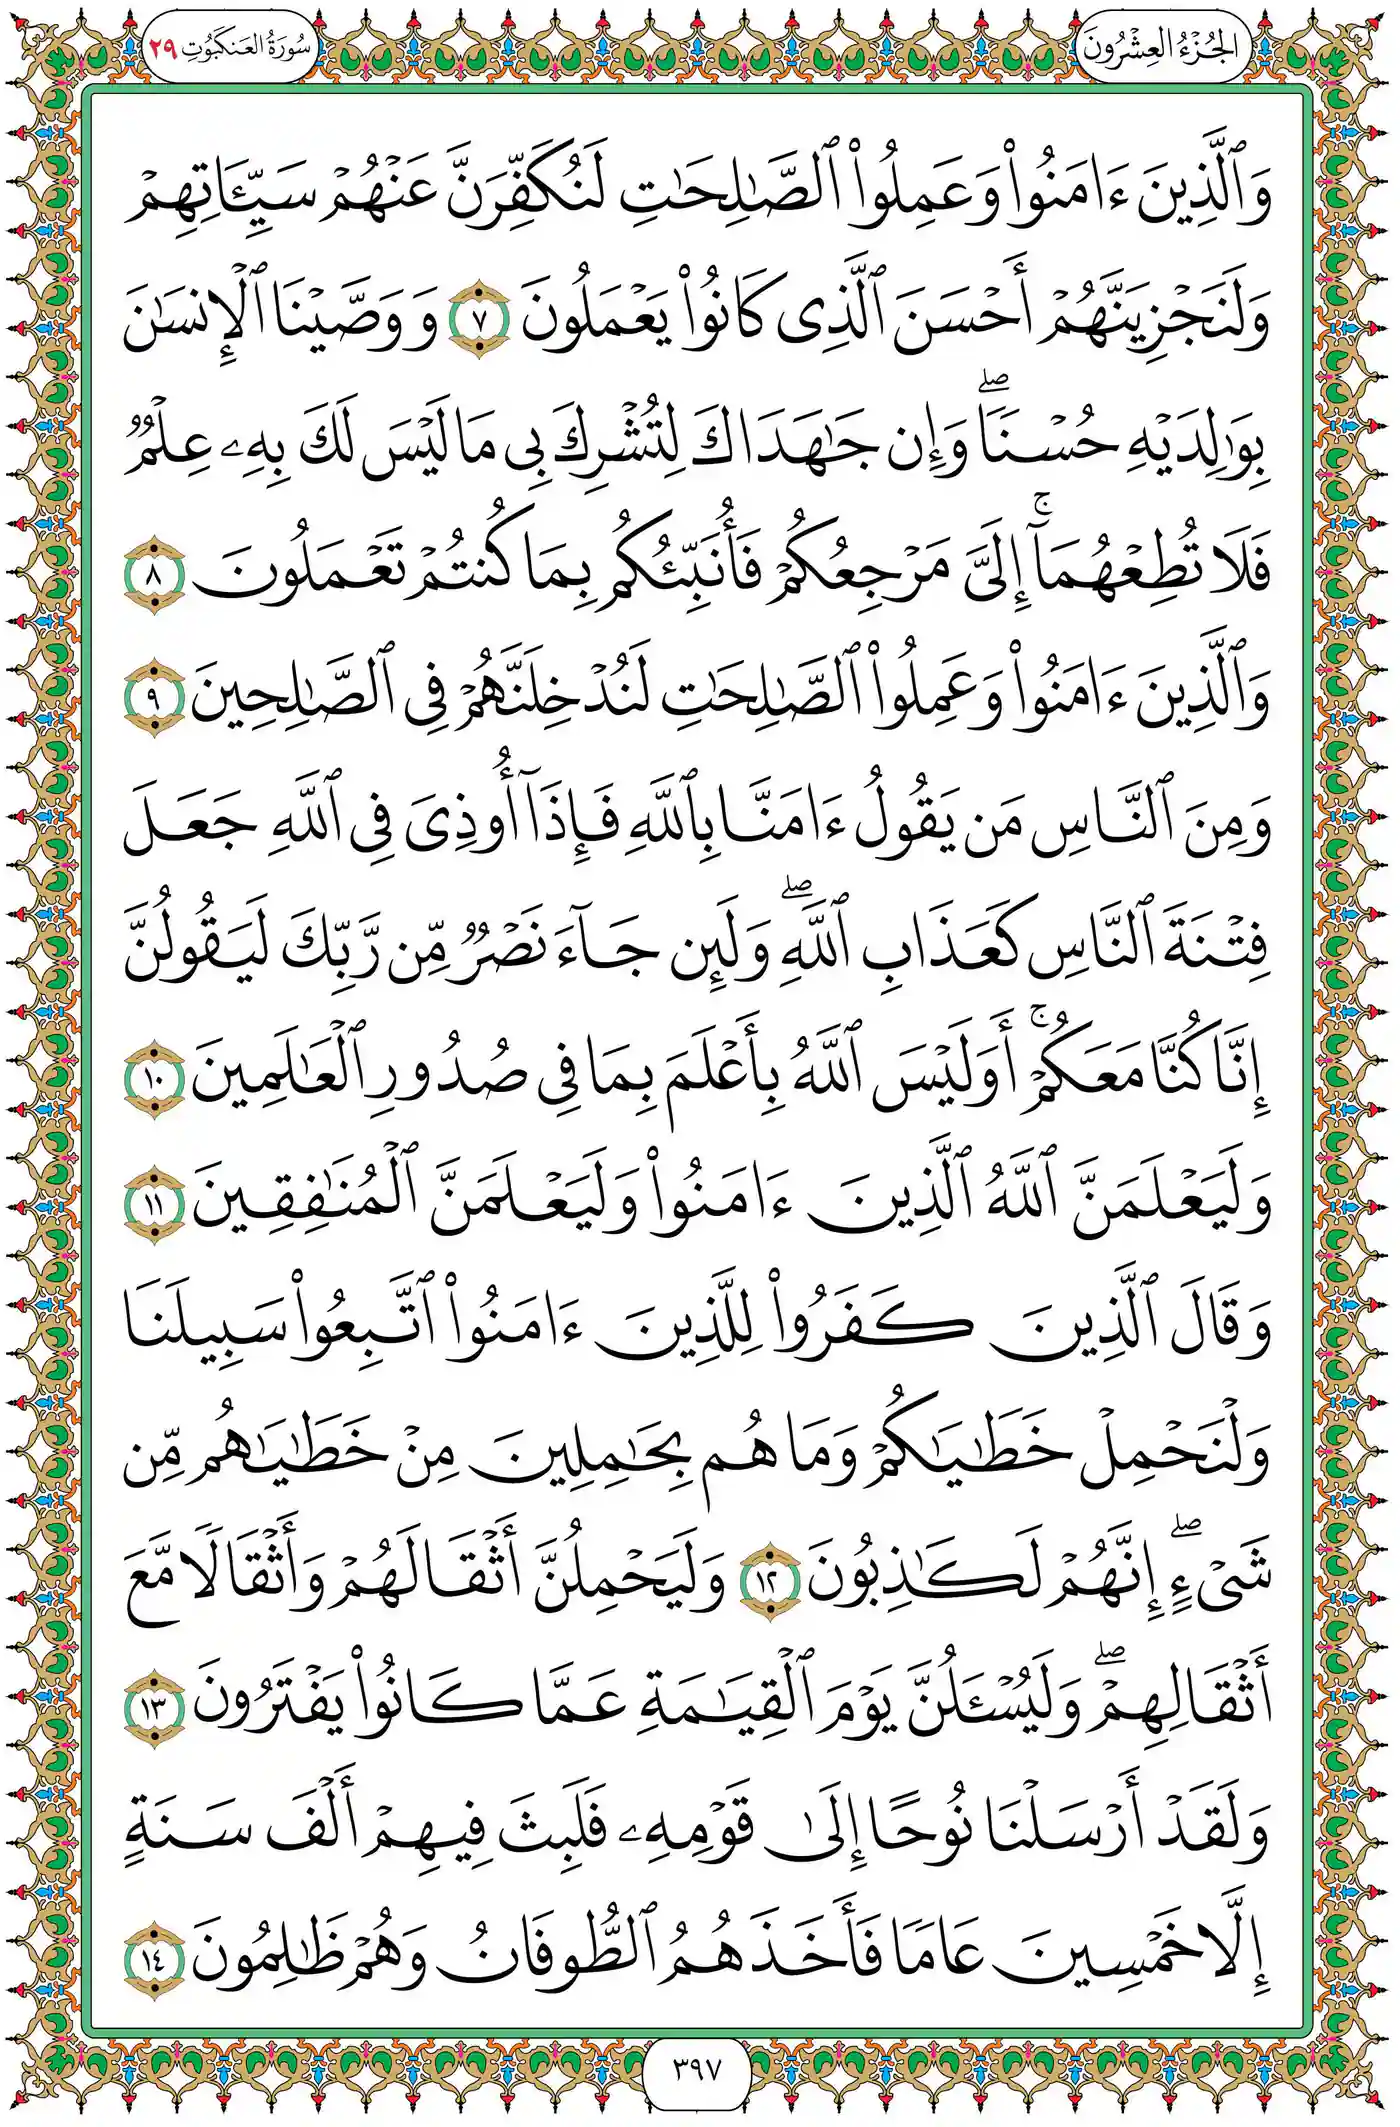 الجُزْءُ العِشْرُونَ
سُورَةُ العَنكَبُوتِ ٢٩
وَٱلَّذِينَ ءَامَنُوا۟ وَعَمِلُوا۟ ٱلصَّـٰلِحَـٰتِ لَنُكَفِّرَنَّ عَنْهُمْ سَيِّـَٔاتِهِمْ
وَلَنَجْزِيَنَّهُمْ أَحْسَنَ ٱلَّذِى كَانُوا۟ يَعْمَلُونَ ٧ وَوَصَّيْنَا ٱلْإِنسَـٰنَ
بِوَٰلِدَيْهِ حُسْنًا ۖ وَإِن جَـٰهَدَاكَ لِتُشْرِكَ بِى مَا لَيْسَ لَكَ بِهِۦ عِلْمٌ
فَلَا تُطِعْهُمَآ ۚ إِلَىَّ مَرْجِعُكُمْ فَأُنَبِّئُكُم بِمَا كُنتُمْ تَعْمَلُونَ ٨
وَٱلَّذِينَ ءَامَنُوا۟ وَعَمِلُوا۟ ٱلصَّـٰلِحَـٰتِ لَنُدْخِلَنَّهُمْ فِى ٱلصَّـٰلِحِينَ ٩
وَمِنَ ٱلنَّاسِ مَن يَقُولُ ءَامَنَّا بِٱللَّهِ فَإِذَآ أُوذِىَ فِى ٱللَّهِ جَعَلَ
فِتْنَةَ ٱلنَّاسِ كَعَذَابِ ٱللَّهِ ۖ وَلَئِن جَآءَ نَصْرٌ مِّن رَّبِّكَ لَيَقُولُنَّ
إِنَّا كُنَّا مَعَكُمْ ۚ أَوَلَيْسَ ٱللَّهُ بِأَعْلَمَ بِمَا فِى صُدُورِ ٱلْعَـٰلَمِينَ ١٠
وَلَيَعْلَمَنَّ ٱللَّهُ ٱلَّذِينَ ءَامَنُوا۟ وَلَيَعْلَمَنَّ ٱلْمُنَـٰفِقِينَ ١١
وَقَالَ ٱلَّذِينَ كَفَرُوا۟ لِلَّذِينَ ءَامَنُوا۟ ٱتَّبِعُوا۟ سَبِيلَنَا
وَلْنَحْمِلْ خَطَـٰيَـٰكُمْ وَمَا هُم بِحَـٰمِلِينَ مِنْ خَطَـٰيَـٰهُم مِّن
شَىْءٍ ۖ إِنَّهُمْ لَكَـٰذِبُونَ ١٢ وَلَيَحْمِلُنَّ أَثْقَالَهُمْ وَأَثْقَالًا مَّعَ
أَثْقَالِهِمْ ۖ وَلَيُسْـَٔلُنَّ يَوْمَ ٱلْقِيَـٰمَةِ عَمَّا كَانُوا۟ يَفْتَرُونَ ١٣
وَلَقَدْ أَرْسَلْنَا نُوحًا إِلَىٰ قَوْمِهِۦ فَلَبِثَ فِيهِمْ أَلْفَ سَنَةٍ
إِلَّا خَمْسِينَ عَامًا فَأَخَذَهُمُ ٱلطُّوفَانُ وَهُمْ ظَـٰلِمُونَ ١٤
٣٩٧